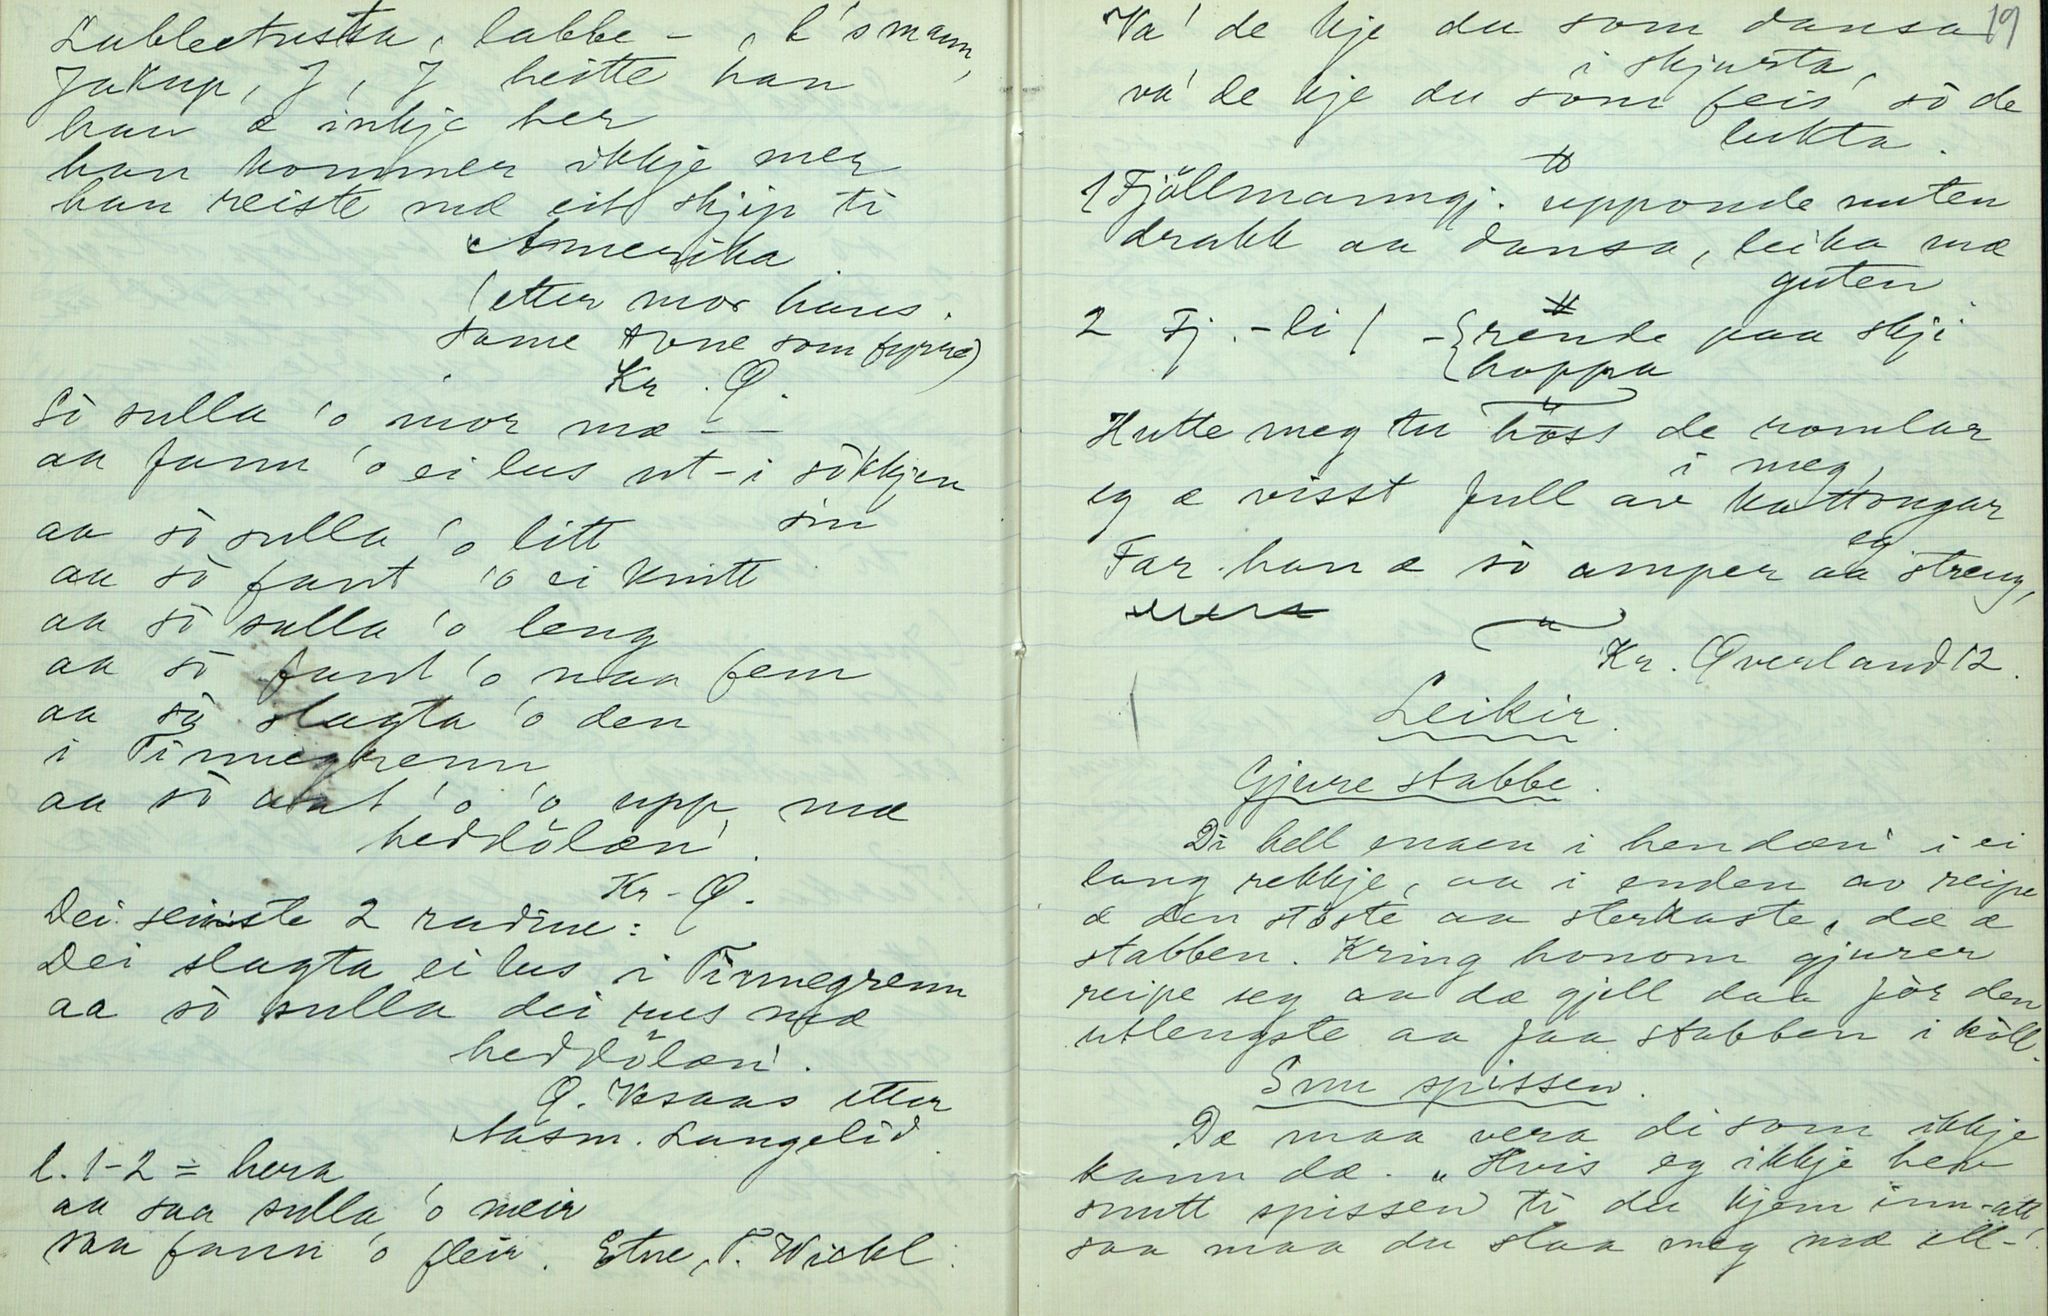 Labbetussa, labbe - , l's mann,
Jakup, J, J heitte han
han æ inkje her
han kommer ikkje mer
han reiste mæ eit skjip ti
Amerika
(etter mor hans.
same tone som fyrre)
Kr. Ø.
Sò sulla 'o mor mæ - -
aa fann 'o ei lus ut-i sòkkjen
sin
aa sò sulla 'o litt
aa sò fant 'o ei knitt
aa sò sulla 'o leng
aa sò fant 'o naa fem
aa sò slagta 'o den
i Tinnegrenn
aa sò aat 'o 'o upp mæ
heddölæn'.
Kr. Ø.
Dei seinste 2 radine:
Dei slagta ei lus i Tinnegrenn
aa sò sulla dei rus mæ
heddölæn'.
Ø. Vesaas etter
Aasm. Langelid.
l. 1-2 = hera
aa saa sulla 'o meir
saa fann 'o fleir. Etne, T. Wickl.
19
Va' de kje du som dansa
i skjurta,
va' de kje du som feis' sò de
lukta.
1 Fjöllmanngj. upponde nuten
drakk aa dansa, leika mæ
guten
2 Fj. - li / - { rende paa skji
{ hoppa
Hutte meg tu höss de romlar
i meg,
eg æ visst full av kattongar
Far han æ so amper aa streng,
eg
Kr. Øverland 12.
Leikir.
Gjure stabbe.
Di hell enaen i hendæn' i ei
lang rekkje, aa i enden av reipe
æ den störste aa sterkaste, dæ æ
stabben. Kring honom gjurer
reipe seg aa dæ gjell daa för den
utlengste aa faa stabben i köll.
Snu spissen.
Dæ maa vera di som ikkje
kann dæ. "Hvis eg ikkje hev
snutt spissen ti du kjem inn-att
saa maa du slaa meg mæ ell-